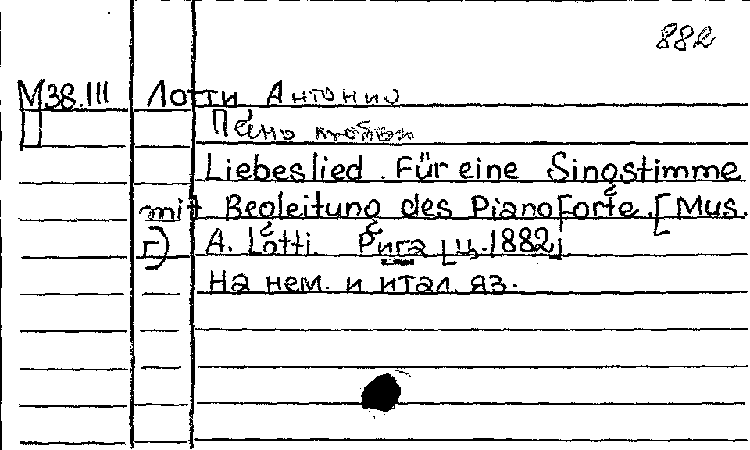 882
М38.III Лотти Антонио
Песнь любви
Liebeslied. Für eine Singstimme
mit Begleitung des Pianoforte. [Mus.
г) A. Lotti. Рига [ц.1882]
На нем. и итал. яз.